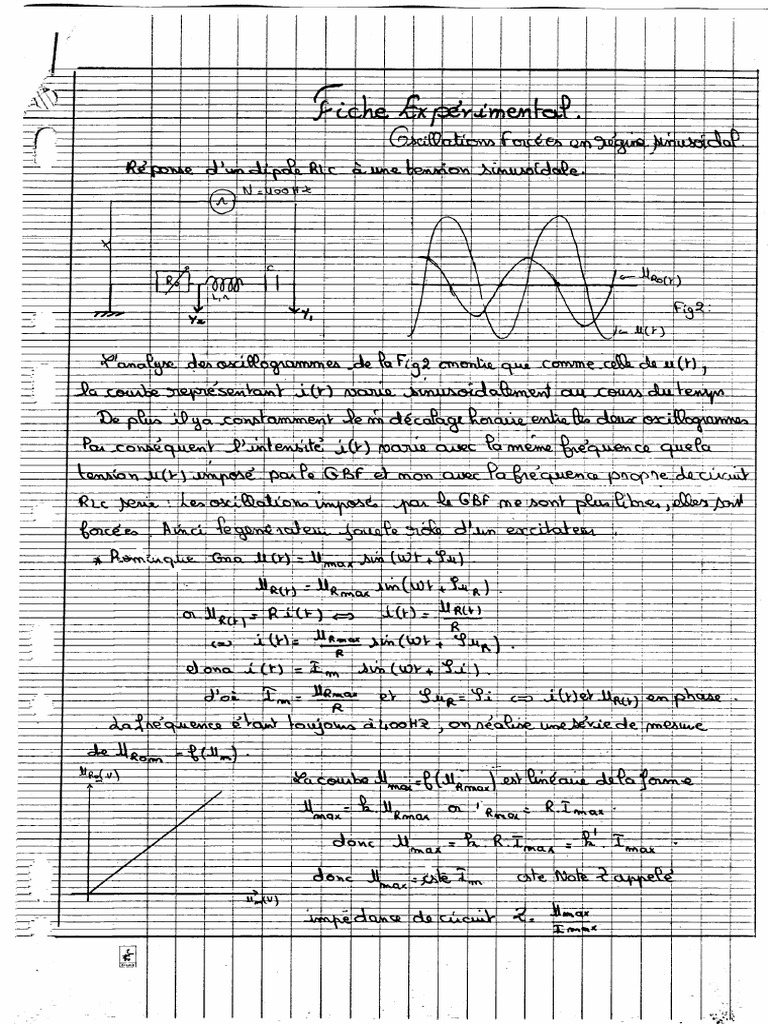 Fiche Expérimental.
Oscillations forcées en régime sinusoïdal.
Réponse d'un dipole RLC à une tension sinusoïdale.
N = 400HZ
R
L,r
C
Y2
Y1
uR0(t)
u(t)
Fig2.
L'analyse des oscillogrammes de la Fig2 montre que comme celle de u(t),
la courbe représentant i(t) varie sinusoïdalement au cours du temps
De plus il ya constamment le m̂ décalage horaire entre les deux oscillogrammes
Par conséquent l'intensité i(t) varie avec la même fréquence que la
tension u(t) imposé par le GBF et non avec la fréquence propre de circuit
RLC serie : Les oscillations imposés par le GBF ne sont plus libres, elles sont
forcées. Ainci le generateur joue le rôle d'un excitateur.
* Rominque Ona u(t) = Umax sin(wt + φu)
UR(t) = URmax sin(wt + φuR).
or UR(t) = R i(t) ⇔ i(t) = UR(t)/R
⇔ i(t) = URmax/R sin(wt + φuR).
et ona i(t) = Im sin(wt + φi).
d'où Im = URmax/R et φuR = φi ⇔ i(t) et UR(t) en phase.
La fréquence étant toujours à 400HZ, on réalise une série de mesure
de UR0m = f(Um).
UR0(V)
Um(V)
La courbe Umax = f(URmax) est linéaire de la forme
Umax = k.URmax or 'Rmax = R.Imax.
donc Umax = k.R.Imax = k'.Imax.
donc Umax = cste Im cste Note Z appelé
impédance de circuit Z = Umax/Imax